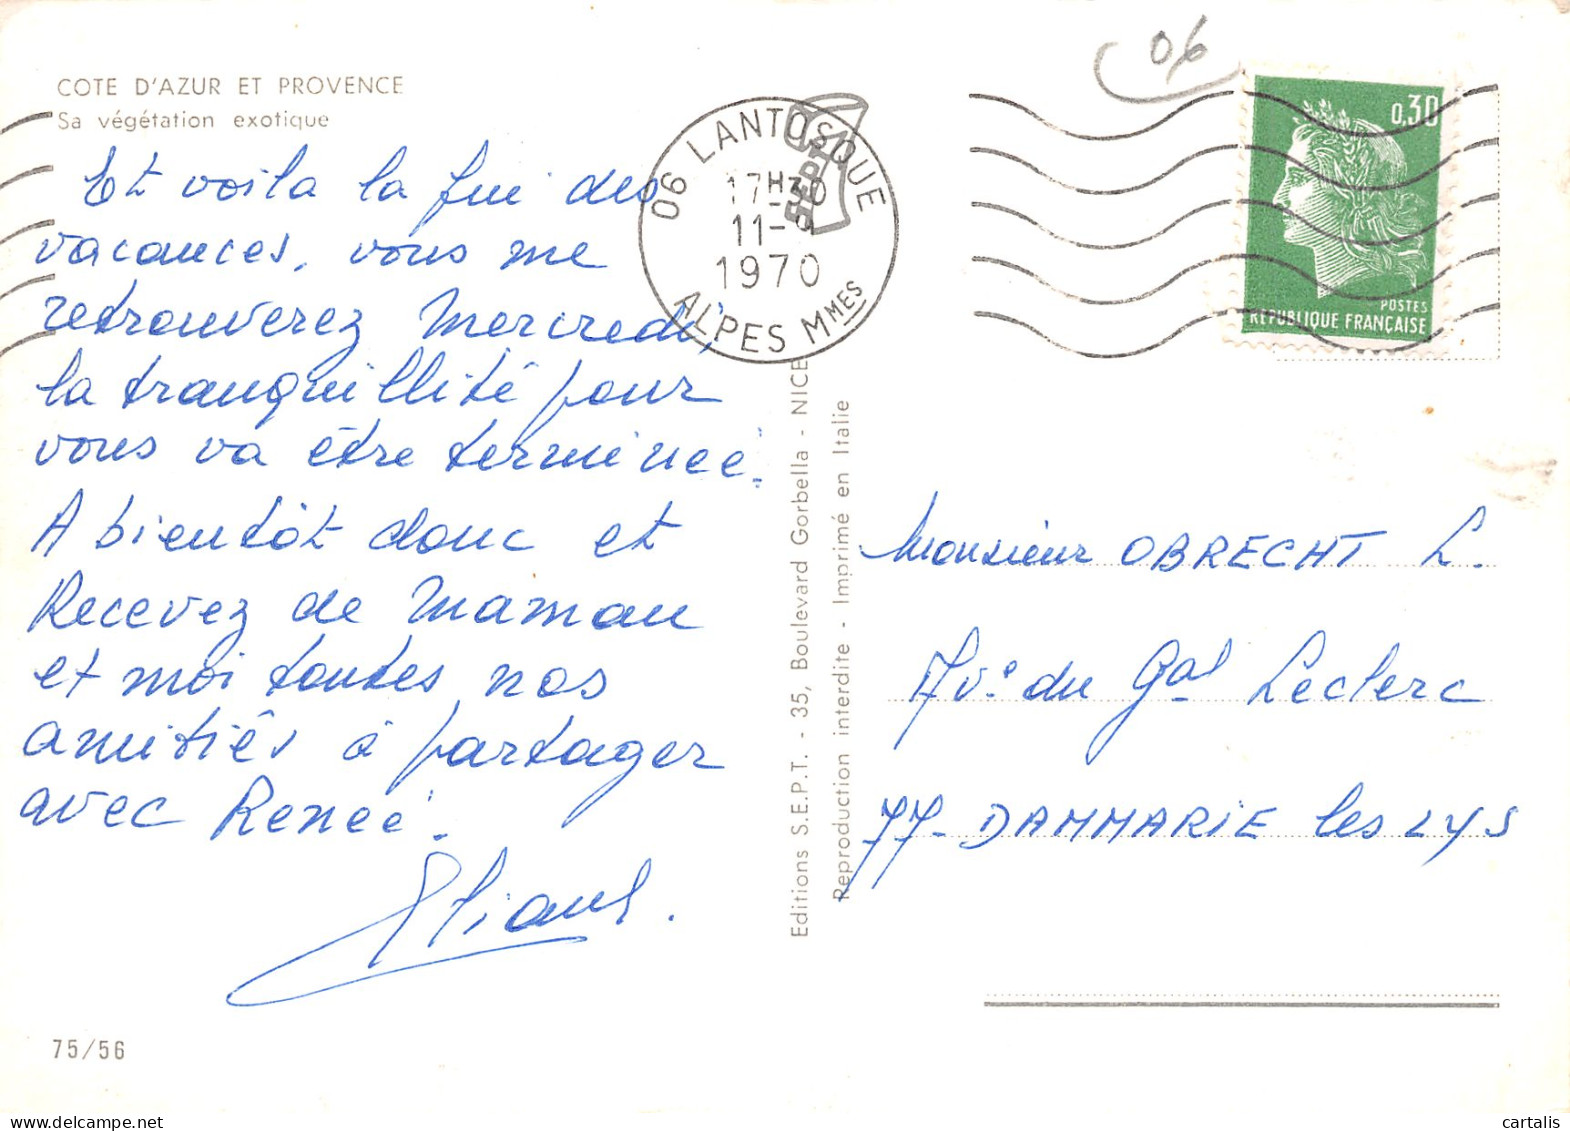 COTE D'AZUR ET PROVENCE
Sa végétation exotique
Et voila la fin des
vacances, vous me
retrouverez Mercredi,
la tranquillité pour
vous va être terminée.
A bientôt donc et
Recevez de Maman
et moi toutes nos
amitiés à partager
avec Renée.
Eliane.
75/56
06 LANTOSQUE
17H30
11-
1970
ALPES MMES
SEPT
Editions S.E.P.T. - 35, Boulevard Gorbella - NICE
Reproduction interdite - Imprimé en Italie
06
0,30
POSTES
REPUBLIQUE FRANÇAISE
Monsieur OBRECHT L.
Ave du Gal Leclerc
77- DAMMARIE les LYS
cartalis